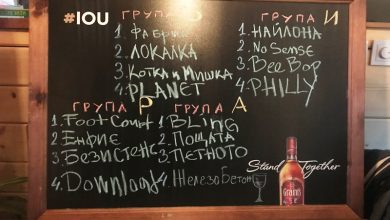 #IOU
ГРУПА О
1. ФАБРИК
2. ЛОКАЛКА
3. Котка и Мишка
4. PLANET
ГРУПА И
1. НАЙЛОНА
2. No Sense
3. Bee Bop
4. PHILLY
ГРУПА Р
1. Foot Court
2. Енфие
3. БЕЗИСТЕНС
4. Download
ГРУПА А
1. BLING
2. ПОЩАТА
3. ПЕТНОТО
4. ЖЕЛЕЗОБЕТОН
Stand Together
Grant's